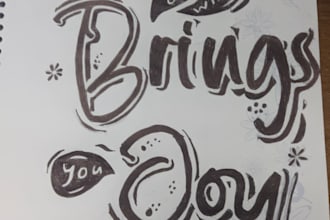 Brings
you Joy